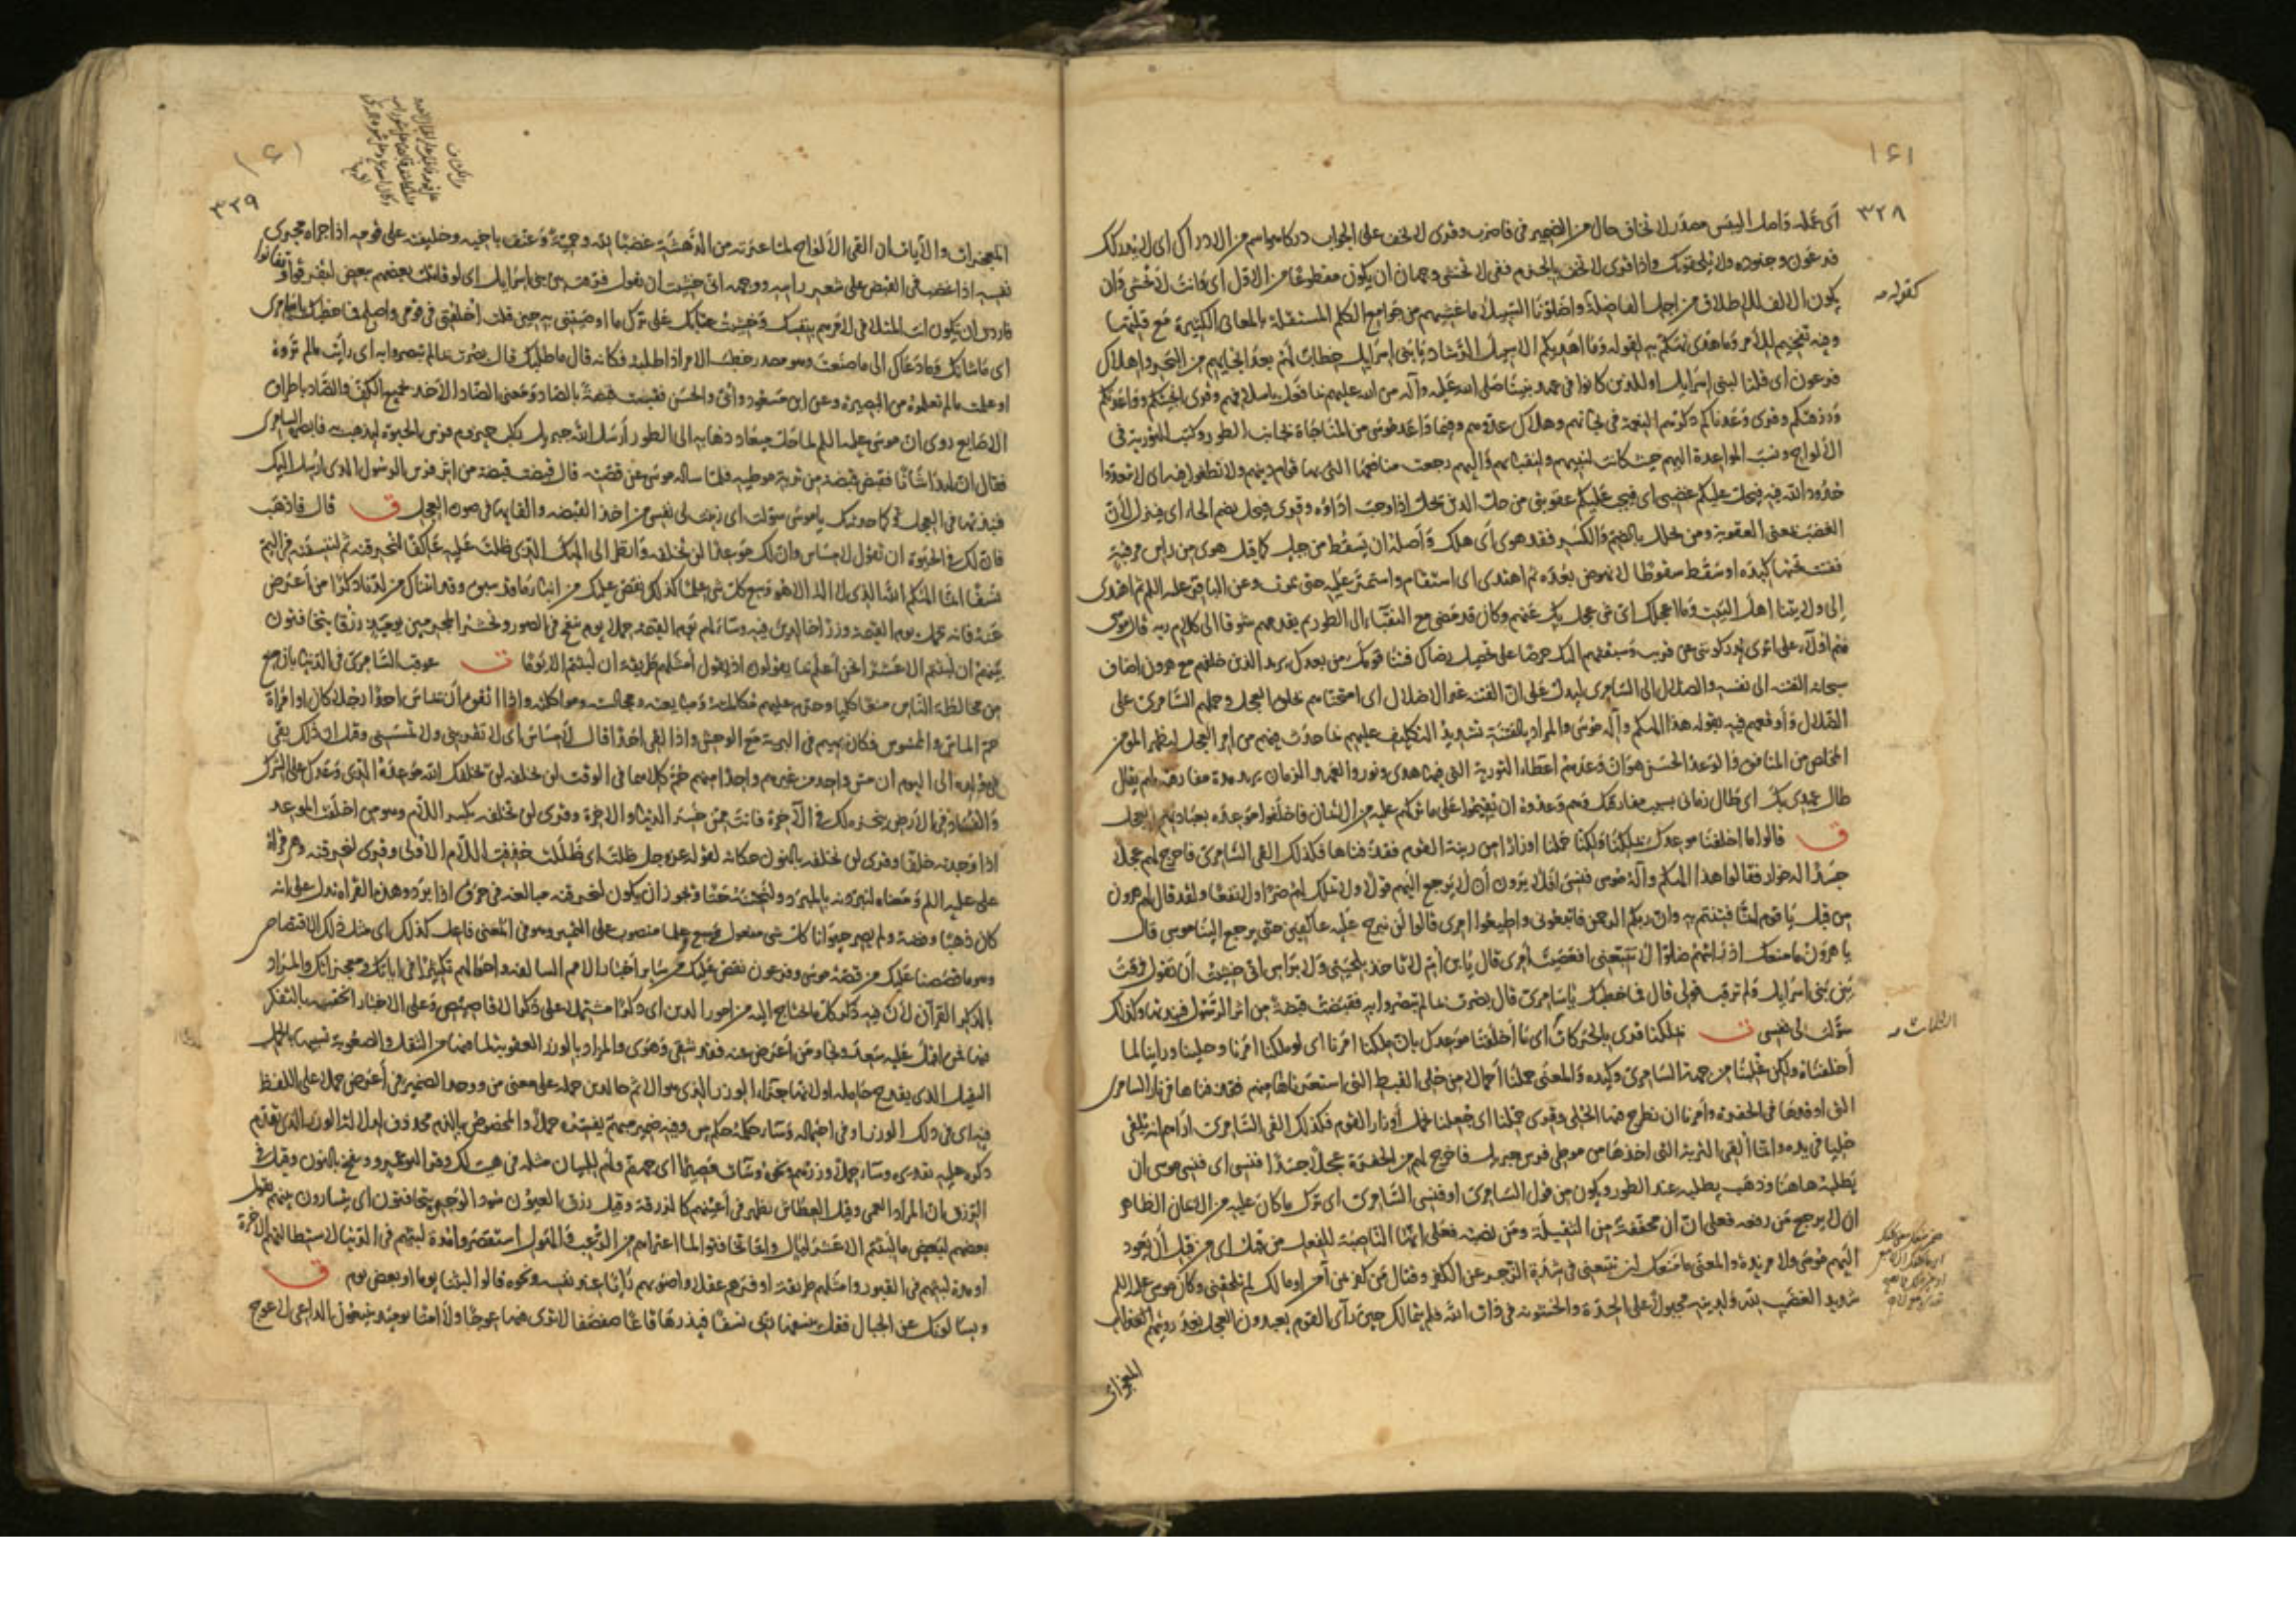 ١٦١
٣٢٨
أي عمله فاصل اليبس مصدر لا تخاف حال من الضمير في فاضرب وقرئ لا تخف على الجواب دركا هو اسم من الادراك اي لا يدركك
فرعون وجنوده ولا يلحقونك واذا قرئ لا تخف بالجزم ففي لا تخشى وجهان ان يكون مقطوعا من الاول اي وانت لا تخشى وان
كقوله
يكون الالف للاطلاق من اجل الفاصلة واضلونا السبيلا ما غشيهم من جوامع الكلم المستقلة بالمعاني الكثيرة مع قلتها
وفيه تفخيم للأمر وما هدى تهكم به لقوله وما اهديكم الا سبيل الرشاد يا بني اسرائيل خطاب لهم بعد انجائهم من البحر واهلاك
فرعون اي قلنا لبني اسرائيل او للذين كانوا في عهد نبينا صلى الله عليه وآله من الله عليهم بما فعل باسلافهم وقرئ انجيتكم وواعدتكم
ورزقتكم وقرئ وعدناكم ذكرهم النعمة في نجاتهم وهلاك عدوهم وفيما واعد موسى من المناجاة بجانب الطور وكتب التورية في
الألواح ونسب المواعدة اليهم حيث كانت لنبيهم ولنقبائهم واليهم رجعت منافعها التي بها قوام دينهم ولا تطغوا فيه اي لا تتعدوا
حدود الله فيه فيحل عليكم غضبي اي فيجب عليكم عقوبتي من حل الدين يحل اذا وجب اداؤه وقرئ فيحل بضم الحاء اي فينزل لأن
الغضب بمعنى العقوبة ومن يحلل بالضم والكسر فقد هوى أي هلك وأصله ان يسقط من جبل كما قيل هوى من رأس مرقبة
ففتت تحتها كبده او سقط سقوطا لا نهوض بعده ثم اهتدى اي استقام واستمر عليه حتى يموت وعن الباقر عليه السلم ثم اهتدى
إلى ولايتنا اهل البيت وما اعجلك اي شيء عجل بك عنهم وكان قد مضى مع النقباء الى الطور ثم تقدمهم شوقا الى كلام ربه قال موسى
هم اولاء على اثري يدركونني عن قريب وسبقتهم اليك حرصا على تحصيل رضاك فتنا قومك من بعدك يريد الذين خلفهم مع هرون اضاف
سبحانه الفتنة الى نفسه والضلال الى السامري ليدل على ان الفتنة غير الاضلال اي امتحناهم بخلق العجل وحملهم السامري على
الضلال وأوقعهم فيه بقوله هذا الهكم وآله موسى والمراد بالفتنة تشديد التكليف عليهم بما حدث فيهم من امر العجل ليظهر المؤمن
المخلص من المنافق والوعد الحسن هو ان وعدهم اعطاء التورية التي فيها هدى ونور والعهد الزمان يريد مدة مفارقته لهم يقال
طال عهدي بك اي طال زماني بسبب مفارقتك وهم وعدوه ان يقيموا على ما تركهم عليه من الايمان فاخلفوا موعده بعبادتهم العجل
ق قالوا ما اخلفنا موعدك بملكنا ولكنا حملنا اوزارا من زينة القوم فقذفناها فكذلك القى السامري فاخرج لهم عجلا
جسدا له خوار فقالوا هذا الهكم وآله موسى فنسى افلا يرون أن لا يرجع اليهم قولا ولا يملك لهم ضرا ولا نفعا ولقد قال لهم هرون
من قبل يا قوم انما فتنتم به وان ربكم الرحمن فاتبعوني واطيعوا امري قالوا لن نبرح عليه عاكفين حتى يرجع الينا موسى قال
يا هرون ما منعك اذ رايتهم ضلوا الا تتبعني افعصيت أمري قال يا ابن أم لا تأخذ بلحيتي ولا براسي اني خشيت أن تقول فرقت
بين بني اسرايل ولم ترقب قولي قال فما خطبك يا سامري قال بصرت بما لم تبصروا به فقبضت قبضة من اثر الرسول فنبذتها وكذلك
سولت لي نفسي ت بملكنا قرئ بالحركات
الثلاث
أي ما أخلفنا موعدك بان ملكنا امرنا اي لو ملكنا امرنا وخلينا وراينا لما
أخلفناه ولكن غلبنا من جهة السامري وكيده والمعنى حملنا أحمالا من حلي القبط التي استعرناها منهم فقذفناها في نار السامري
التي اوقدها في الحفرة وأمرنا ان نطرح فيها الحلي وقرئ حملنا اي جعلنا نحمل أوزار القوم فكذلك القى السامري اراهم انه يلقي
حليا في يده وانما ألقى التربة التي اخذها من موطئ فرس جبريل فاخرج لهم من الحفرة عجلا جسدا فنسي اي فنسي موسى ان
يطلبه هاهنا وذهب يطلبه عند الطور ويكون من قول السامري او فنسي السامري اي ترك ما كان عليه من الايمان الظاهر
ان لا يرجع من رفعه فعلى ان أن مخففة من الثقيلة ومن نصبه فعلى انها الناصبة للفعل من قبل اي من قبل أن يعود
اليهم موسى ولا مزيدة والمعنى ما منعك ان تتبعني في شدة الزجر عن الكفر وقتال من كفر بمن آمن او ما لك لم تلحقني وكان موسى عليه السلم
شديد الغضب لله ولدينه مجبولا على الحدة والخشونة في ذات الله فلم يتمالك حين رأى القوم يعبدون العجل بعد رؤيتهم
المعجزات
١٦١
٣٢٩
المعجزات والآيات ان القى الألواح لما عرته من الدهشة غضبا لله وحمية وعنف باخيه وخليفته على قومه اذ اجراه مجرى
نفسه اذا غضب في القبض على شعر راسه ووجهه اني خشيت ان تقول فرقت بين بني اسرايل اي لو قاتلت بعضهم ببعض لتفرقوا وتفانوا
فاردت ان تكون انت المتلافي لامرهم بنفسك وخشيت عتابك على ترك ما اوصيتني به حين قلت اخلفني في قومي واصلح فما خطبك يا سامري
اي ما شانك وما دعاك الى ما صنعت وهو مصدر خطب الامر اذا طلبه فكانه قال ما طلبك قال بصرت بما لم تبصروا به اي رأيت ما لم تروه
او علمت ما لم تعلموه من البصيرة وعن ابن مسعود وأبي والحسن فقبصت قبصة بالصاد ومعنى الضاد الاخذ بجميع الكف والصاد باطراف
الاصابع روي ان موسى عليه السلم لما حل ميعاد ذهابه الى الطور أرسل الله جبريل راكب حيزوم فرس الحيوة ليذهب به فابصره السامري
فقال ان لهذا شأنا فقبض قبضة من تربة موطئه فلما ساله موسى عن قصته قال قبضت قبضة من اثر فرس الرسول الذي ارسل اليك
فنبذتها في العجل وكما حدثتك يا موسى سولت اي زينت لي نفسي من اخذ القبضة والقايها في صورة العجل ق قال فاذهب
فان لك في الحيوة ان تقول لا مساس وان لك موعدا لن تخلفه وانظر الى الهك الذي ظلت عليه عاكفا لنحرقنه ثم لننسفنه في اليم
نسفا انما الهكم الله الذي لا اله الا هو وسع كل شيء علما كذلك نقص عليك من انباء ما قد سبق وقد اتيناك من لدنا ذكرا من أعرض
عنه فانه يحمل يوم القيمة وزرا خالدين فيه وساء لهم يوم القيمة حملا يوم ينفخ في الصور ونحشر المجرمين يومئذ زرقا يتخافتون
بينهم ان لبثتم الا عشرا نحن أعلم بما يقولون اذ يقول أمثلهم طريقة ان لبثتم الا يوما ت عوقب السامري في الدنيا بان منع
من مخالطة الناس منعا كليا وحرم عليهم مكالمته ومبايعته ومجالسته ومواكلته واذا اتفق أن يماس احدا رجلا كان او امراة
حم الماس والممسوس فكان يهيم في البرية مع الوحش واذا لقي احدا قال لا مساس أي لا تقربني ولا تمسني وقيل ان ذلك بقي
في ولده الى اليوم ان مس واحد من غيرهم واحدا منهم حم كلاهما في الوقت لن تخلفه لن يخلفك الله موعده الذي وعدك على الشرك
والفساد في الأرض ينجزه لك في الآخرة فانت ممن خسر الدنيا والاخرة وقرئ لن تخلفه بكسر اللام وهو من اخلفت الموعد
اذا وجدته خلفا وقرئ لن نخلفه بالنون حكاية لقوله عز وجل ظلت اي ظللت فخفف اللام الاولى وقرئ لنحرقنه وهي قراة
علي عليه السلم ومعناه لنبردنه بالمبرد ولنحتنه حتا ويجوز ان يكون لنحرقنه مبالغة في حرق اذا برد وهذه القراة تدل على انه
كان ذهبا وفضة ولم يصر حيوانا كل شيء مفعول وسع وعلما منصوب على التمييز وهو في المعنى فاعل كذلك اي مثل ذلك الاقتصاص
وهو ما قصصنا عليك من قصة موسى وفرعون نقص عليك من ساير أخبار الامم السالفة واحوالهم تكثيرا في اياتك ومعجزاتك والمراد
بالذكر القرآن لان فيه ذكر كل ما يحتاج اليه من امور الدين اي ذكرا مشتملا على ذكر الاقاصيص وعلى الاخبار الحقيقة بالتفكر
فيها فمن اقبل عليه سعد ونجا ومن أعرض عنه فقد شقي وهوى والمراد بالوزر العقوبة لما فيها من الثقل والصعوبة تشبيها بالحمل
الثقيل الذي يفدح حامله او لانها جزاء الوزر الذي هو الاثم خالدين حمله على معنى من ووحد الضمير في أعرض حملا على اللفظ
فيه اي في ذلك الوزر او في احتماله وساء حكمه حكم بئس وفيه ضمير مبهم يفسره حملا والمخصوص بالذم محذوف لدلالة الوزر الذي تقدم
ذكره عليه تقديره وساء حملا وزرهم
الزرق ان المراد العمى وقيل العطاش يظهر في أعينهم كالزرقة وقيل زرق العيون سود الوجوه يتخافتون اي يتسارون بينهم يقول
بعضهم لبعض ما لبثتم الا عشر ليال وانما تخافتوا لما اعتراهم من الرعب والهول استقصروا مدة لبثهم في الدنيا لاستطالتهم الآخرة
او مدة لبثهم في القبور وامثلهم طريقة اوفرهم عقلا واصوبهم رأيا عند نفسه ونحوه قالوا لبثنا يوما او بعض يوم ق
ويسألونك عن الجبال فقل ينسفها ربي نسفا فيذرها قاعا صفصفا لا ترى فيها عوجا ولا امتا يومئذ يتبعون الداعي لا عوج